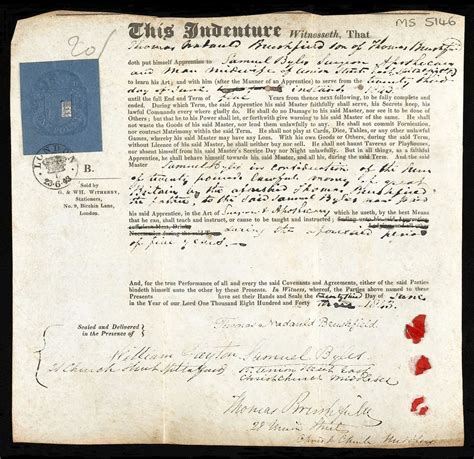 MS 5146
20/
This Indenture Witnesseth, That
Thomas Nadauld Brushfield son of Thomas Brushfield
doth put himself Apprentice to Samuel Byles Surgeon Apothecary
and Man midwife of Union Street East Spitalfields
to learn his Art; and with him (after the Manner of an Apprentice) to serve from the twenty third
day of June instant 1843
until the full End and Term of five Years from thence next following, to be fully complete and
ended. During which Term, the said Apprentice his Master faithfully shall serve, his Secrets keep, his
lawful Commands every where gladly do. He shall do no Damage to his Master, nor see it to be done of
others; but that he to his Power shall let, or forthwith give warning to his said Master of the same. He
shall not waste the Goods of his said Master, nor lend them unlawfully to any. He shall not commit Fornication,
nor contract Matrimony within the said Term. He shall not play at Cards, Dice, Tables, or any other unlawful
Games, whereby his said Master may have any Loss. With his own Goods or others, during the said Term,
without Licence of his said Master, shall neither buy nor sell. He shall not haunt Taverns or Playhouses,
nor absent himself from his said Master's Service Day nor Night unlawfully. But in all things, as a faithful
Apprentice, he shall behave himself towards his said Master, and all his, during the said Term. And the said
Master Samuel Byles in consideration of the Sum
of twenty pounds lawful money of Great
Britain by the aforesaid Thomas Brushfield
the father, to the said Samuel Byles now paid
his said Apprentice, in the Art of Surgeon & Apothecary which he useth, by the best Means
that he can, shall teach and instruct, or cause to be taught and instructed;
during the aforesaid period
of five years
And, for the true Performance of all and every the said Covenants and Agreements, either of the said Parties
bindeth himself unto the other by these Presents. In Witness, whereof, the Parties above named to these
Presents have set their Hands and Seals the twenty third Day of June
in the Year of our Lord One Thousand Eight Hundred and Forty three 1843.
LONDON
23.6.43
B.
Sold by
G. & WH. WITHERBY,
Stationers,
No. 9, Birchin Lane,
London.
Sealed and Delivered
in the Presence of
Thomas Nadauld Brushfield
William
Church Street Spitalfields
Samuel Byles
Union Street East
Christchurch Middlesex
Thomas Brushfield
28 Union Street
Christ Church